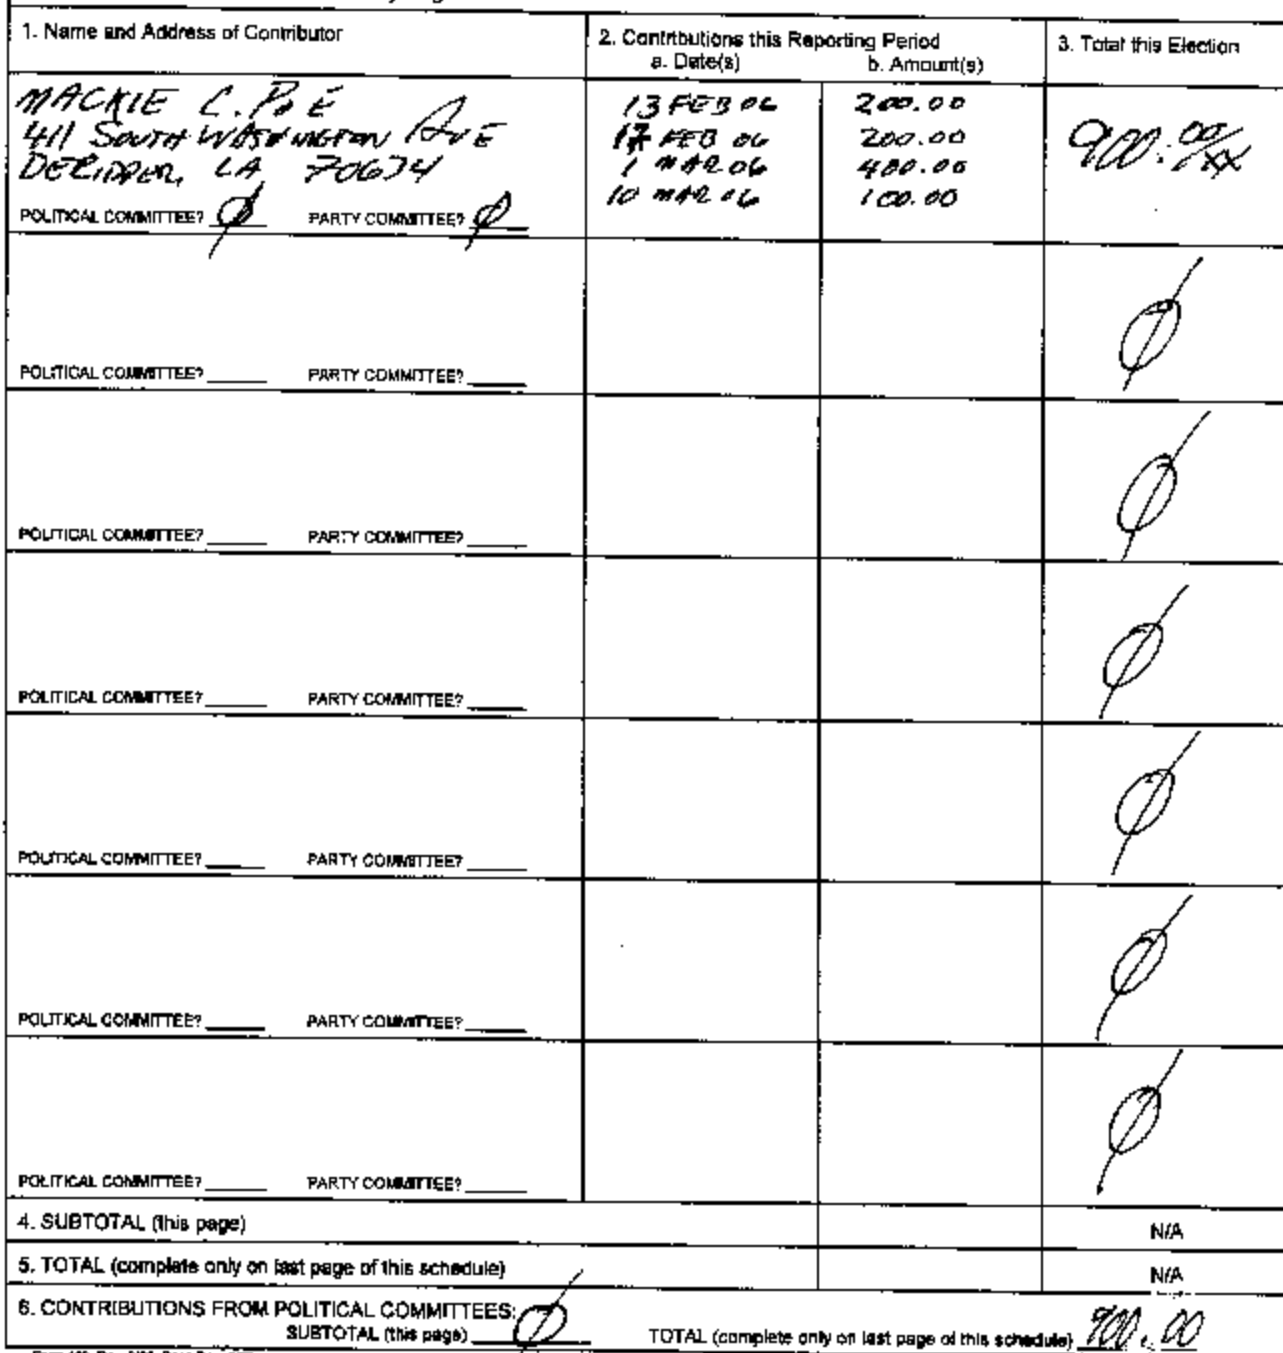 1. Name and Address of Contributor
2. Contributions this Reporting Period
a. Date(s) b. Amount(s)
3. Total this Election
MACKIE C. POE
411 SOUTH WASHINGTON AVE
DERIDDER, LA 70634
13 FEB 06 200.00
17 FEB 06 200.00
1 MAR 06 400.00
10 MAR 06 100.00
900.00/XX
POLITICAL COMMITTEE? Ø PARTY COMMITTEE? Ø
Ø
POLITICAL COMMITTEE? PARTY COMMITTEE?
Ø
POLITICAL COMMITTEE? PARTY COMMITTEE?
Ø
POLITICAL COMMITTEE? PARTY COMMITTEE?
Ø
POLITICAL COMMITTEE? PARTY COMMITTEE?
Ø
POLITICAL COMMITTEE? PARTY COMMITTEE?
Ø
POLITICAL COMMITTEE? PARTY COMMITTEE?
4. SUBTOTAL (this page) N/A
5. TOTAL (complete only on last page of this schedule) N/A
6. CONTRIBUTIONS FROM POLITICAL COMMITTEES:
SUBTOTAL (this page) Ø TOTAL (complete only on last page of this schedule) 900.00